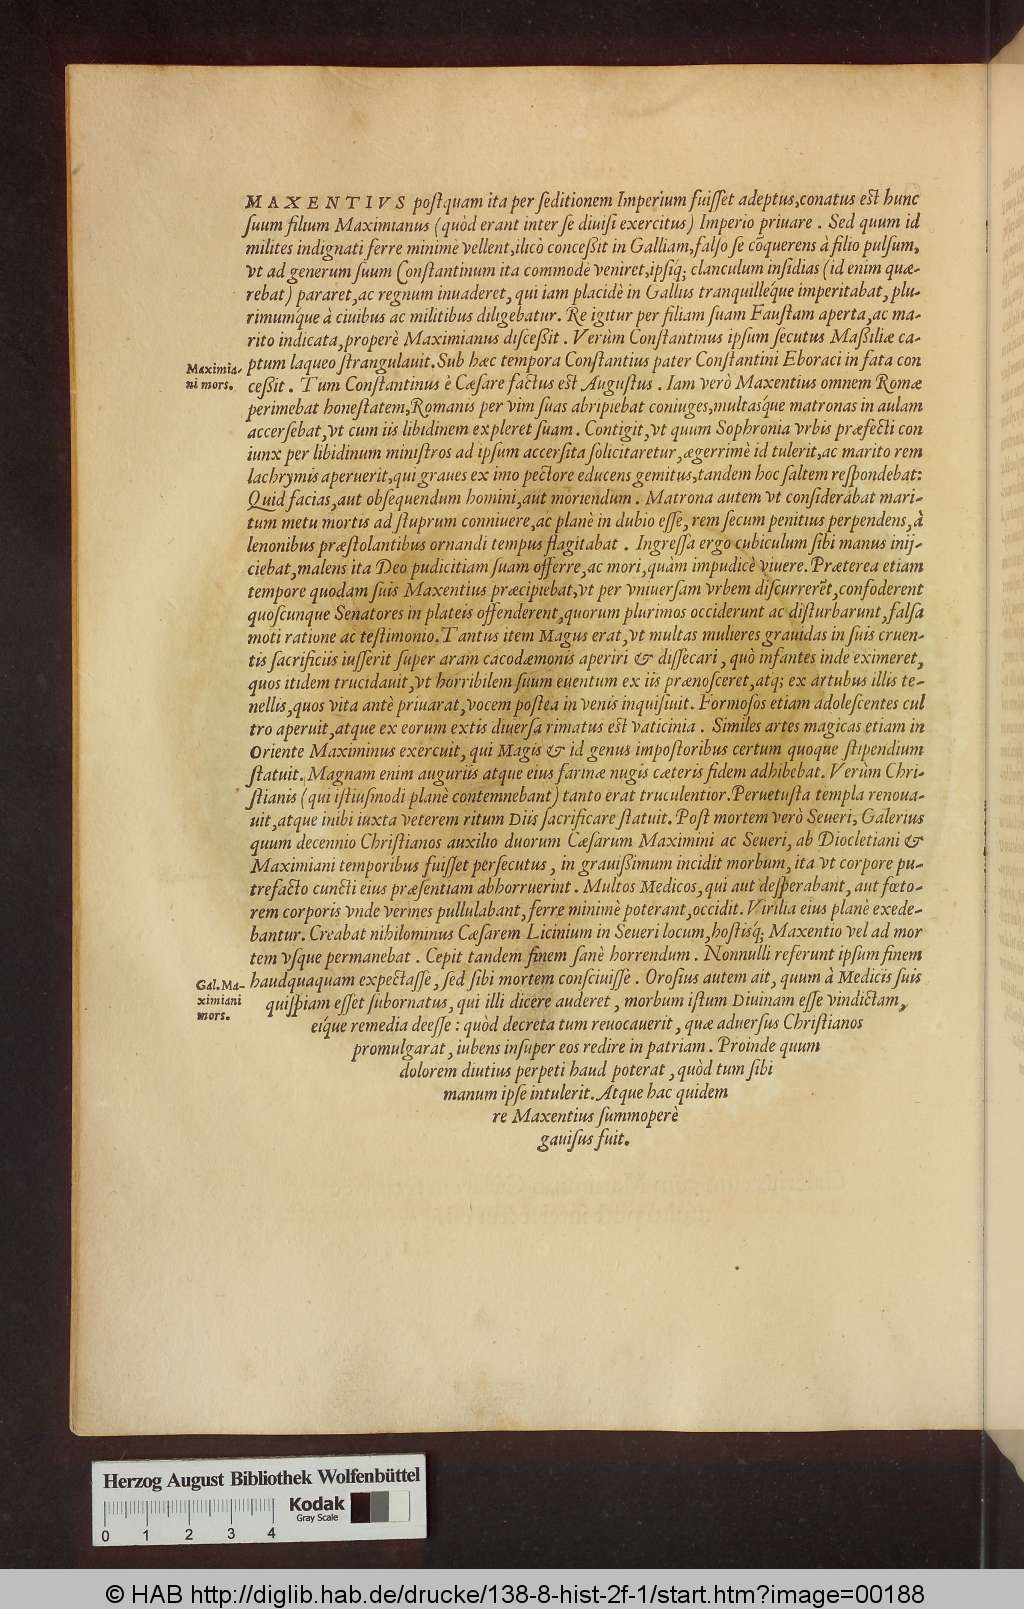 MAXENTIVS poſtquam ita per ſeditionem Imperium fuiſſet adeptus, conatus eſt hunc
ſuum filium Maximianus (quòd erant inter ſe diuiſi exercitus) Imperio priuare. Sed quum id
milites indignati ferre minimè vellent, ilicò conceßit in Galliam, falſo ſe cõquerens à filio pulſum,
vt ad generum ſuum Conſtantinum ita commodè veniret, ipſiq; clanculum inſidias (id enim quæ-
rebat) pararet, ac regnum inuaderet, qui iam placidè in Gallijs tranquilleq́ue imperitabat, plu-
rimumq́ue à ciuibus ac militibus diligebatur. Re igitur per filiam ſuam Fauſtam aperta, ac ma-
rito indicata, properè Maximianus diſceßit. Verùm Conſtantinus ipſum ſecutus Maßiliæ ca-
Maximia-
ni mors.
ptum laqueo ſtrangulauit. Sub hæc tempora Conſtantius pater Conſtantini Eboraci in fata con
ceßit. Tum Conſtantinus è Cæſare factus eſt Auguſtus. Iam verò Maxentius omnem Romæ
perimebat honeſtatem, Romanis per vim ſuas abripiebat coniuges, multasq́ue matronas in aulam
accerſebat, vt cum iis libidinem expleret ſuam. Contigit, vt quum Sophronia vrbis præfecti con
iunx per libidinum miniſtros ad ipſum accerſita ſolicitaretur, ægerrimè id tulerit, ac marito rem
lachrymis aperuerit, qui graues ex imo pectore educens gemitus, tandem hoc ſaltem reſpondebat:
Quid facias, aut obſequendum homini, aut moriendum. Matrona autem vt conſiderabat mari-
tum metu mortis ad ſtuprum conniuere, ac planè in dubio eſſe, rem ſecum penitius perpendens, à
lenonibus præſtolantibus ornandi tempus flagitabat. Ingreſſa ergo cubiculum ſibi manus inij-
ciebat, malens ita Deo pudicitiam ſuam offerre, ac mori, quàm impudicè viuere. Præterea etiam
tempore quodam ſuis Maxentius præcipiebat, vt per vniuerſam vrbem diſcurrerẽt, confoderent
quoſcunque Senatores in plateis offenderent, quorum plurimos occiderunt ac diſturbarunt, falſa
moti ratione ac teſtimonio. Tantus item Magus erat, vt multas mulieres grauidas in ſuis cruen-
tis ſacrificiis iuſſerit ſuper aram cacodæmonis aperiri & diſſecari, quò infantes inde eximeret,
quos itidem trucidauit, vt horribilem ſuum euentum ex iis prænoſceret, atq; ex artubus illis te-
nellis, quos vita antè priuarat, vocem poſtea in venis inquiſiuit. Formoſos etiam adoleſcentes cul
tro aperuit, atque ex eorum extis diuerſa rimatus eſt vaticinia. Similes artes magicas etiam in
Oriente Maximinus exercuit, qui Magis & id genus impoſtoribus certum quoque ſtipendium
ſtatuit. Magnam enim auguriis atque eius farinæ nugis cæteris fidem adhibebat. Verùm Chri-
ſtianis (qui iſtiuſmodi planè contemnebant) tanto erat truculentior. Peruetuſta templa renoua-
uit, atque inibi iuxta veterem ritum Diis ſacrificare ſtatuit. Poſt mortem verò Seueri, Galerius
quum decennio Chriſtianos auxilio duorum Cæſarum Maximini ac Seueri, ab Diocletiani &
Maximiani temporibus fuiſſet perſecutus, in grauißimum incidit morbum, ita vt corpore pu-
trefacto cuncti eius præſentiam abhorruerint. Multos Medicos, qui aut deſperabant, aut fœto-
rem corporis vnde vermes pullulabant, ferre minimè poterant, occidit. Virilia eius planè exede-
bantur. Creabat nihilominus Cæſarem Licinium in Seueri locum, hoſtisq; Maxentio vel ad mor
tem vſque permanebat. Cepit tandem finem ſanè horrendum. Nonnulli referunt ipſum finem
Gal. Ma-
ximiani
mors.
haudquaquam expectaſſe, ſed ſibi mortem conſciuiſſe. Oroſius autem ait, quum à Medicis ſuis
quiſpiam eſſet ſubornatus, qui illi dicere auderet, morbum iſtum Diuinam eſſe vindictam,
eiq́ue remedia deeſſe: quòd decreta tum reuocauerit, quæ aduerſus Chriſtianos
promulgarat, iubens inſuper eos redire in patriam. Proinde quum
dolorem diutius perpeti haud poterat, quòd tum ſibi
manum ipſe intulerit. Atque hac quidem
re Maxentius ſummoperè
gauiſus fuit.
Herzog August Bibliothek Wolfenbüttel
Kodak
Gray Scale
0 1 2 3 4
© HAB http://diglib.hab.de/drucke/138-8-hist-2f-1/start.htm?image=00188